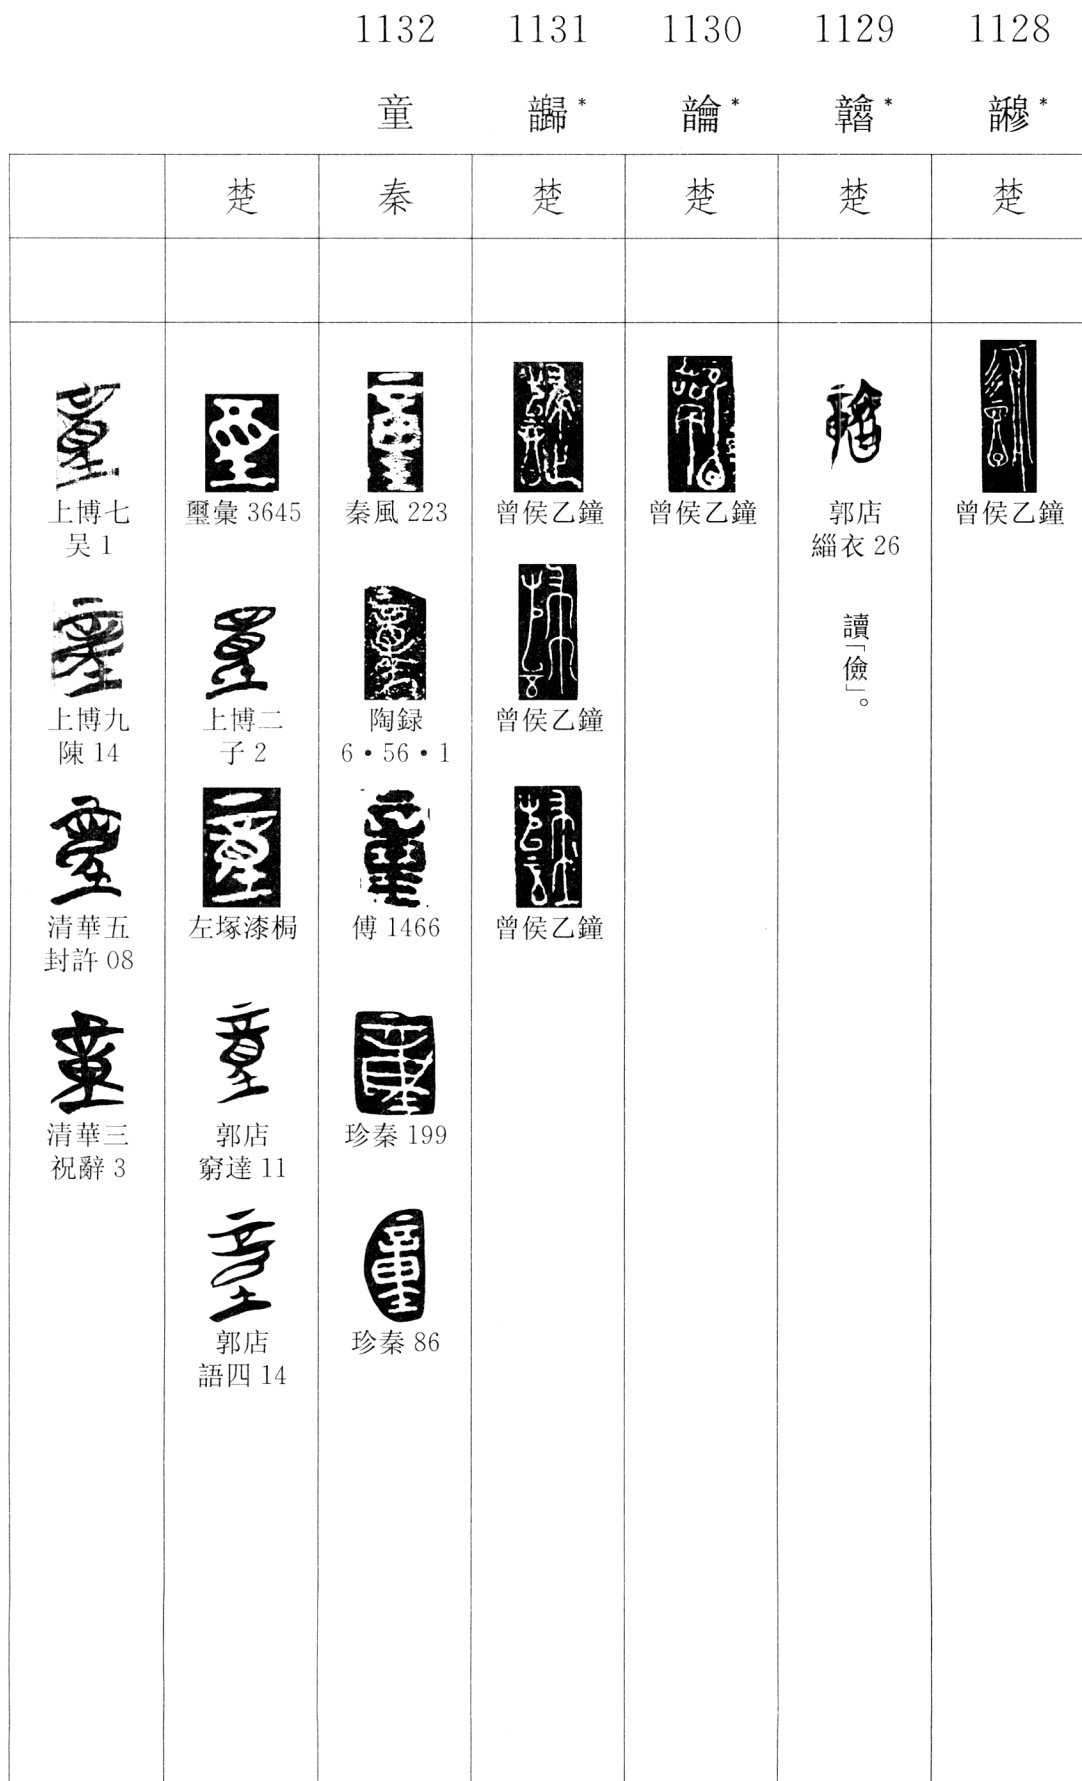 1128
*
楚
曾侯乙鐘
1129
*
楚
郭店
緇衣 26
讀「儉」。
1130
*
楚
曾侯乙鐘
1131
*
楚
曾侯乙鐘
曾侯乙鐘
曾侯乙鐘
1132
童
秦
秦風 223
陶録
6・56・1
傅 1466
珍秦 199
珍秦 86
楚
璽彙 3645
上博二
子 2
左塚漆梮
郭店
窮達 11
郭店
語四 14
上博七
吴 1
上博九
陳 14
清華五
封許 08
清華三
祝辭 3